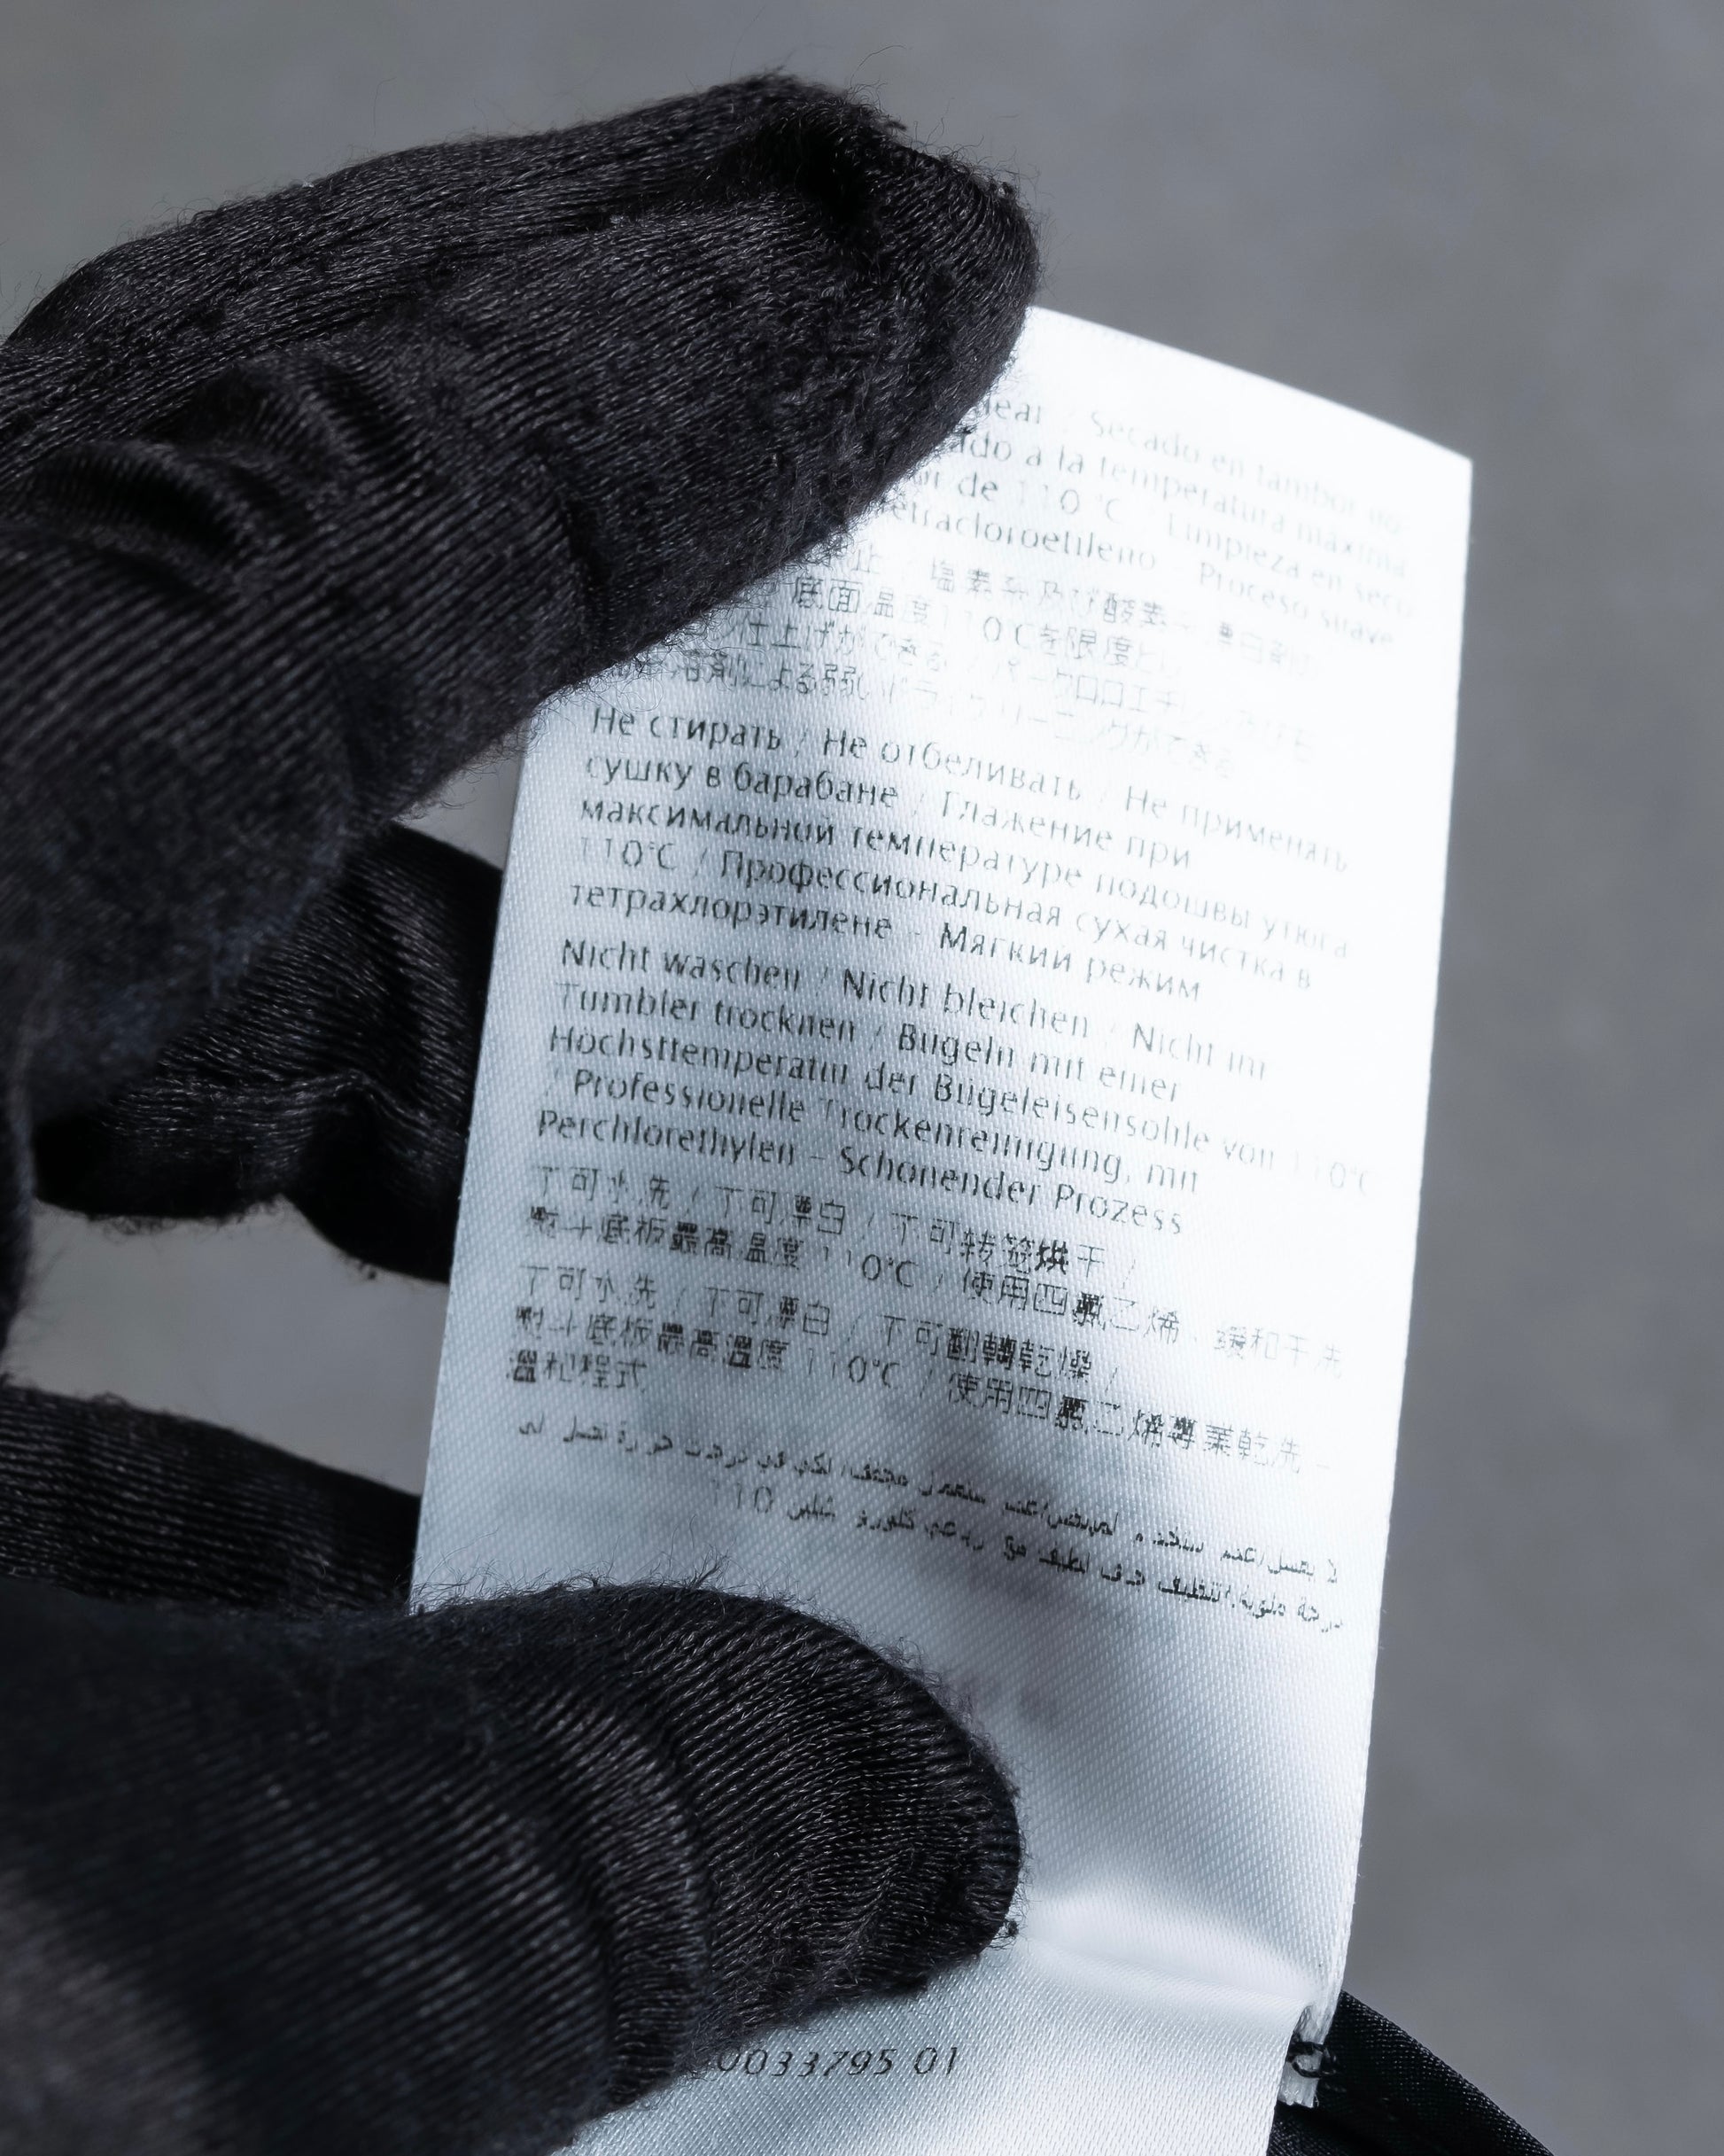 Secado en tambor no
a la temperatura máxima
de 110 °C - Limpieza en seco
tetracloroetileno - Proceso suave
止 / 塩素系及び酸素系漂白剤
底面温度110℃を限度とし
仕上げができる / パークロロエチレン及び石
溶剤による弱いドライクリーニングができる
Не стирать / Не отбеливать / Не применять
сушку в барабане / Глажение при
максимальной температуре подошвы утюга
110°C / Профессиональная сухая чистка в
тетрахлорэтилене - Мягкий режим
Nicht waschen / Nicht bleichen / Nicht im
Tumbler trocknen / Bügeln mit einer
Höchsttemperatur der Bügeleisensohle von 110°C
/ Professionelle Trockenreinigung, mit
Perchlorethylen - Schonender Prozess
不可水洗 / 不可漂白 / 不可转笼烘干 /
熨斗底板最高温度110°C / 使用四氯乙烯，缓和干洗
不可水洗 / 不可漂白 / 不可翻轉乾燥 /
熨斗底板最高溫度110°C / 使用四氯乙烯專業乾洗 -
溫和程式
110
0033795 01